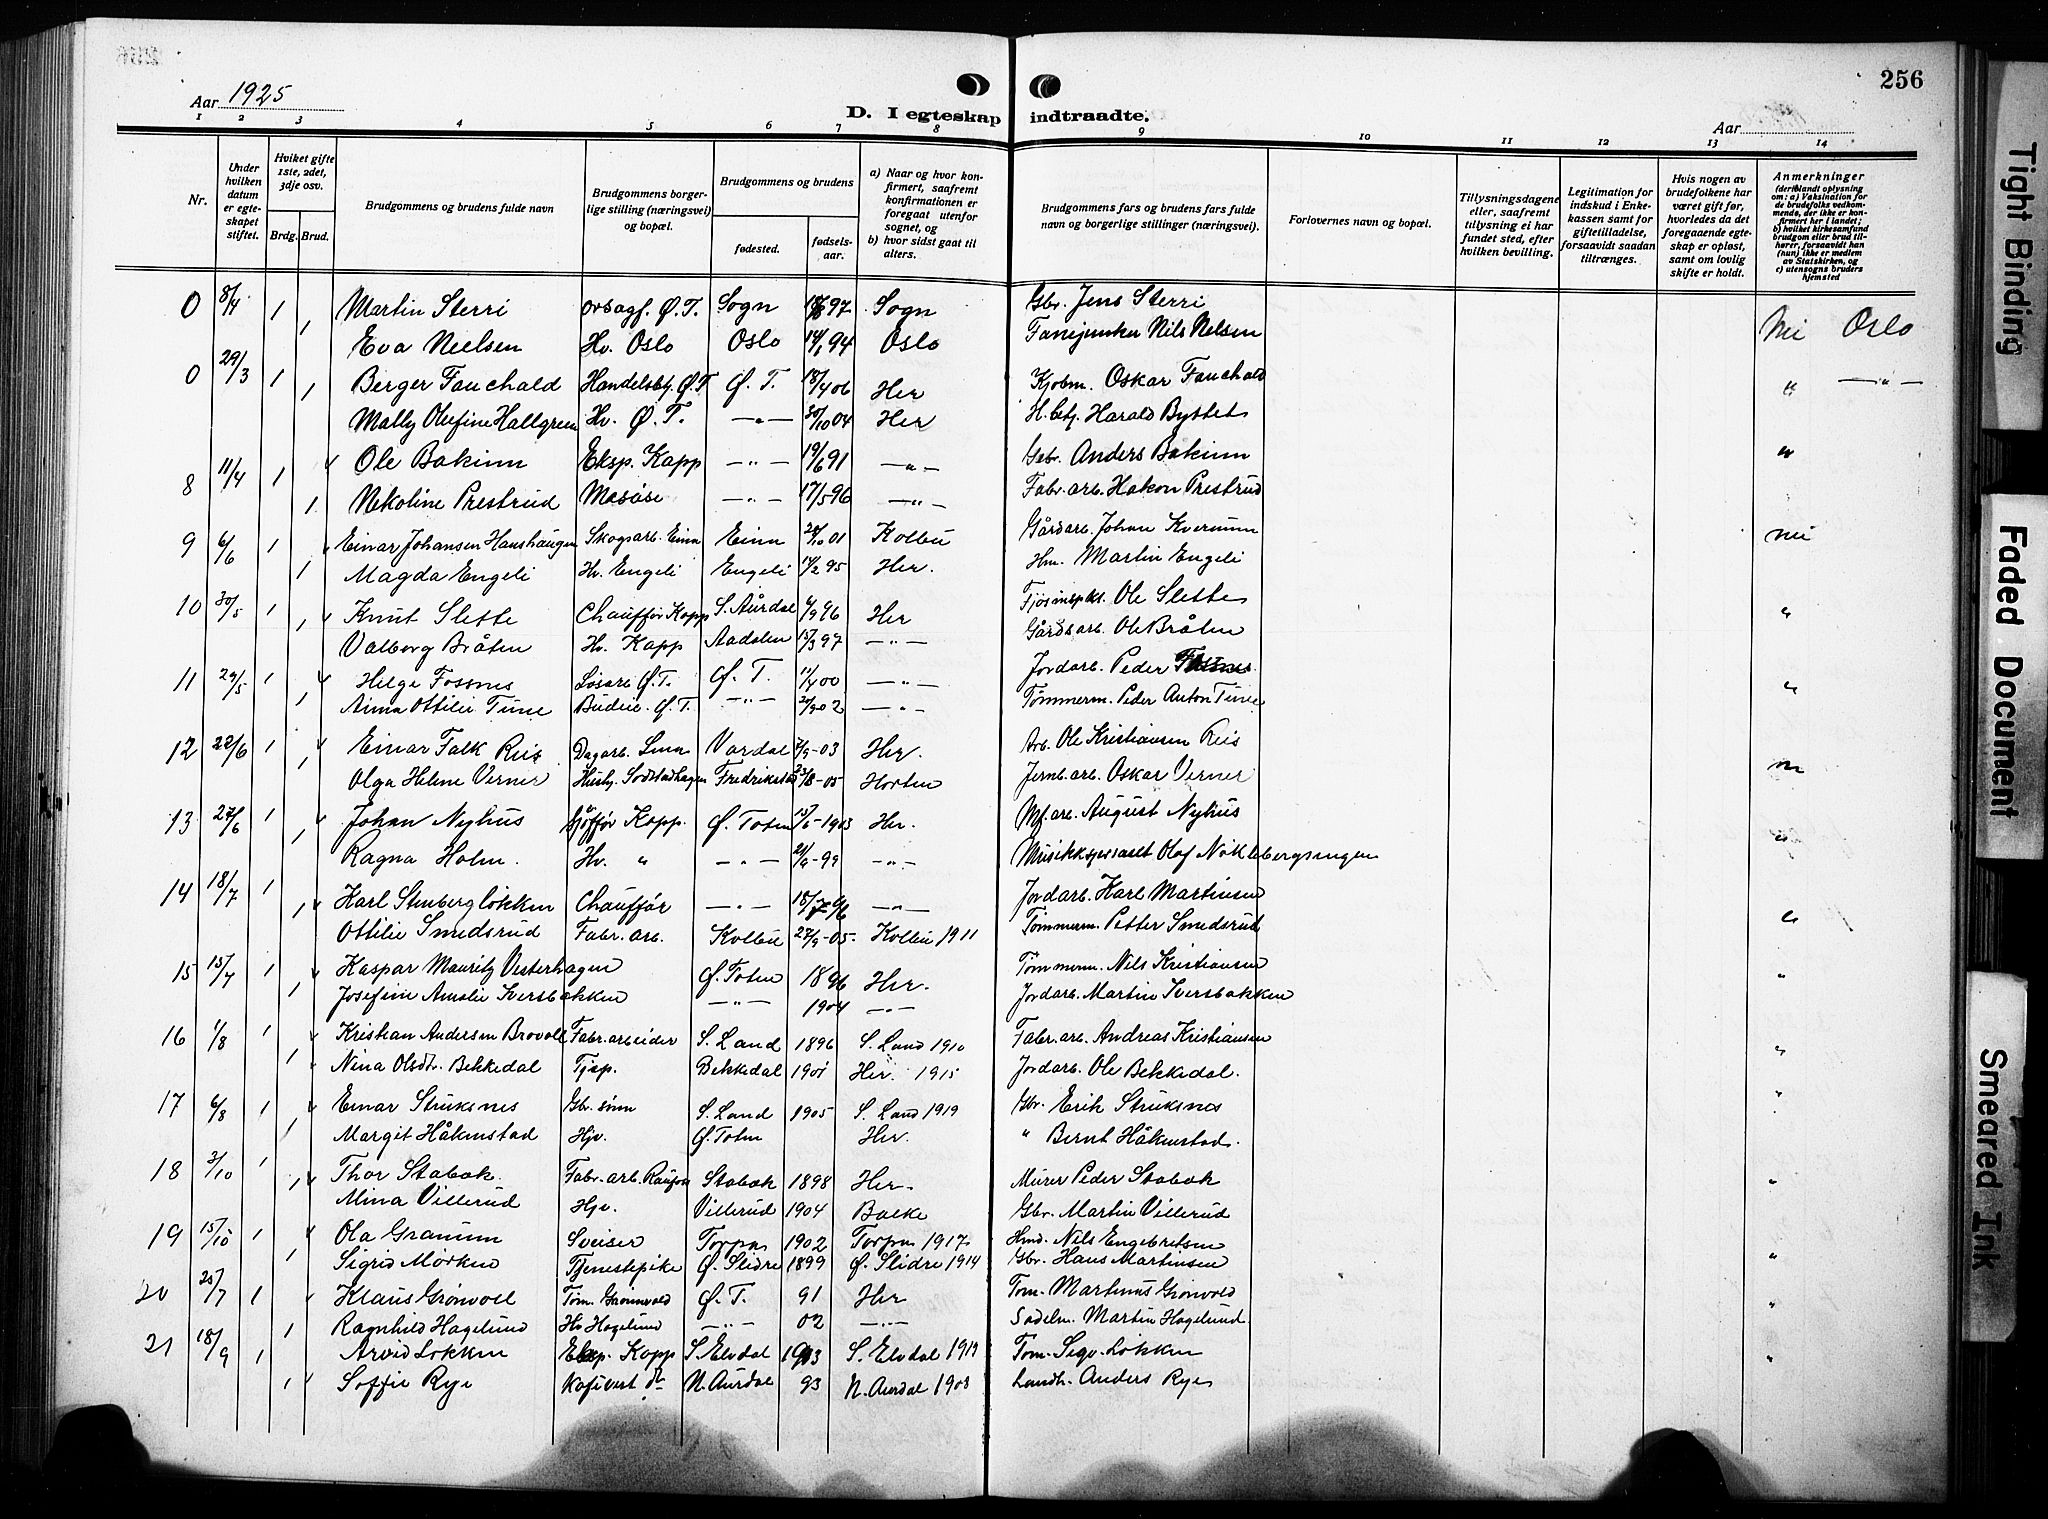 256
Aar 1925
D. I egteskap indtraadte.
Aar
1 2 3 4 5 6 7 8 9 10 11 12 13 14
Nr.
Under hvilken datum er egteskapet stiftet.
Hvilket gifte 1ste, 2det, 3dje osv.
Brdg. Brud.
Brudgommens og brudens fulde navn
Brudgommens borgerlige stilling (næringsvei) og bopæl.
Brudgommens og brudens
fødested.
fødselsaar.
a) Naar og hvor konfirmert, saafremt konfirmationen er foregaat utenfor sognet, og
b) hvor sidst gaat til alters.
Brudgommens fars og brudens fars fulde navn og borgerlige stillinger (næringsvei).
Forlovernes navn og bopæl.
Tillysningsdagene eller, saafremt tillysning ei har fundet sted, efter hvilken bevilling.
Legitimation for indskud i Enkekassen samt for giftetilladelse, forsaavidt saadan tiltrænges.
Hvis nogen av brudefolkene har været gift før, hvorledes da det foregaaende egteskap er opløst, samt om lovlig skifte er holdt.
Anmerkninger
(deriblandt oplysning om: a) Vaksination for de brudefolks vedkommende, der ikke er konfirmert her i landet; b) hvilket kirkesamfund brudgom eller brud tilhører, forsaavidt han (hun) ikke er medlem av Statskirken, og c) utensogns bruders hjemsted
0 8/4 1 Martin Sterri Ø. T. Sogn 97 Sogn Gbr. Jens Sterri
1 Eva Nielsen Hv. Oslo Oslo 94 Oslo Fanejunker Nils Nelsen Oslo
0 29/3 1 Berger Fauchald Handelsbtj. Ø. T. Ø. T. 18/4 06 Her Kjøbm. Oskar Fauchald " — " —
1 Mally Olufine Hallgreen Hv. Ø. T. — " — 30/10 04 Her H. betj. Harald Bystet
8 11/4 1 Ole Bakinn Eksp. Kapp — " — 19/6 91 — " — Gbr. Anders Bakinn "
1 Nikoline Prestrud Masøse — " — 17/5 96 — " — Fabr. arb. Hakon Prestrud
9 6/6 1 Einar Johansen Haushaugen Skogsarb. Eina Eina 01 Kolbu Gårdarb. Johan Kvernum
1 Magda Engeli Hv. Engeli Engeli 14/2 95 Her. Hm. Martin Engeli
10 30/5 1 Knut Slette Chauffør Kapp S. Aurdal 96 Her Ole Slette "
1 Valborg Bråten Hv. Kapp Aadalen 15/3 97 — " — Gårdsarb. Ole Bråten
11 1 Helge Fossnes Løsarb. Ø. T. Ø. T. 11/4 00 — " — Jordarb. Peder Fossnes
1 Anna Ottilie Tune Budeie. Ø. T. — " — 02 — " — Tømmerm. Peder Anton Tune "
12 22/6 1 Einar Falk Reis Dagarb. Vardal 03 Her. Arb. Ole Kristiansen Reis
1 Olga Helene Verner Husbj. Sodstadhagen Fredrikstad 05 Horten Jernb. arb. Oskar Verner
13 27/6 1 Johan Nyhus Kapp. Ø. Toten 1903 Her. Mf. arb. August Nyhus
1 Ragna Holm. Hv. " — " — 99 — " — Olof Nøklebergsengen "
14 18/7 1 Karl Stenberg Løkken Chauffør — " — — " — Jordarb. Karl Martinsen
1 Ottilie Smedsrud Fabr. arb. Kolbu 27/9-05. Kolbu 1911 Tømmerm. Petter Smedsrud "
15 15/7 1 Kaspar Mauritz Vesterhagen Ø. Toten 1896 Her. Tømmerm. Nils Kristiansen
1 Josefine Amalie Iversbakken — " — 1904 — " — Jordarb. Martin Iversbakken "
16 1/8 1 Kristian Andersen Brovoll Fabr. arbeider S. Land 1896 S. Land 1910 Fabr. arb. Andreas Kristiansen
1 Nina Olsdtr. Bekkedal Tjep. Bekkedal 1901 Her. 1915 Jordarb. Ole Bekkedal. "
17 6/8 1 Einar Struksnes Gbr. sønn S. Land 1905 S. Land 1919 Gbr. Erik Struksnes "
1 Margit Håkenstad Hjv. Ø. Toten Her. " Bernt Håkenstad.
18 3/10 1 Thor Stabok Fabr. arb. Raufoss Stabok 1898 Her. Murer Peder Stabok
1 Mina Villerud Hjv. Villerud 1904 Balke Gbr. Martin Villerud "
19 15/10 1 Ola Granum Sveiser Torpa 1902 Torpa 1917. Hmd. Nils Engebretsen
1 Sigrid Mørken Tjenestepike Ø. Slidre 1899 Ø. Slidre 1914 Gbr. Hans Martinsen "
20 25/7 1 Klaus Grønvoll Tøm. Grønnvold Ø. T. 91 Her Tøm. Martinus Grønvold
1 Ragnhild Hagelund Hv Hagelund — " — 02 — " — Sadelm. Martin Hagelund. "
21 18/9 1 Arvid Løkken Eksp. Kapp S. Elvdal 1903 S. Elvdal 1919 Tøm. Sigv. Løkken
1 Soffie Rye N. Aurdal 93 N. Aurdal 1908 Landh. Anders Rye "
Tight Binding
Faded Document
Smeared Ink